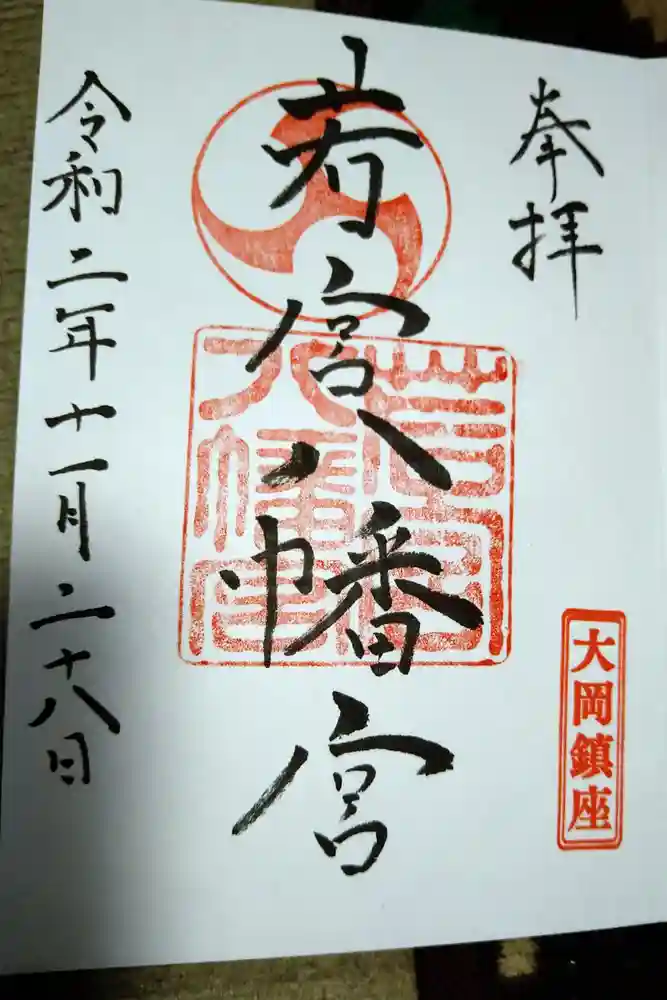 奉拝
大岡鎮座
若宮八幡宮
令和二年十一月二十八日